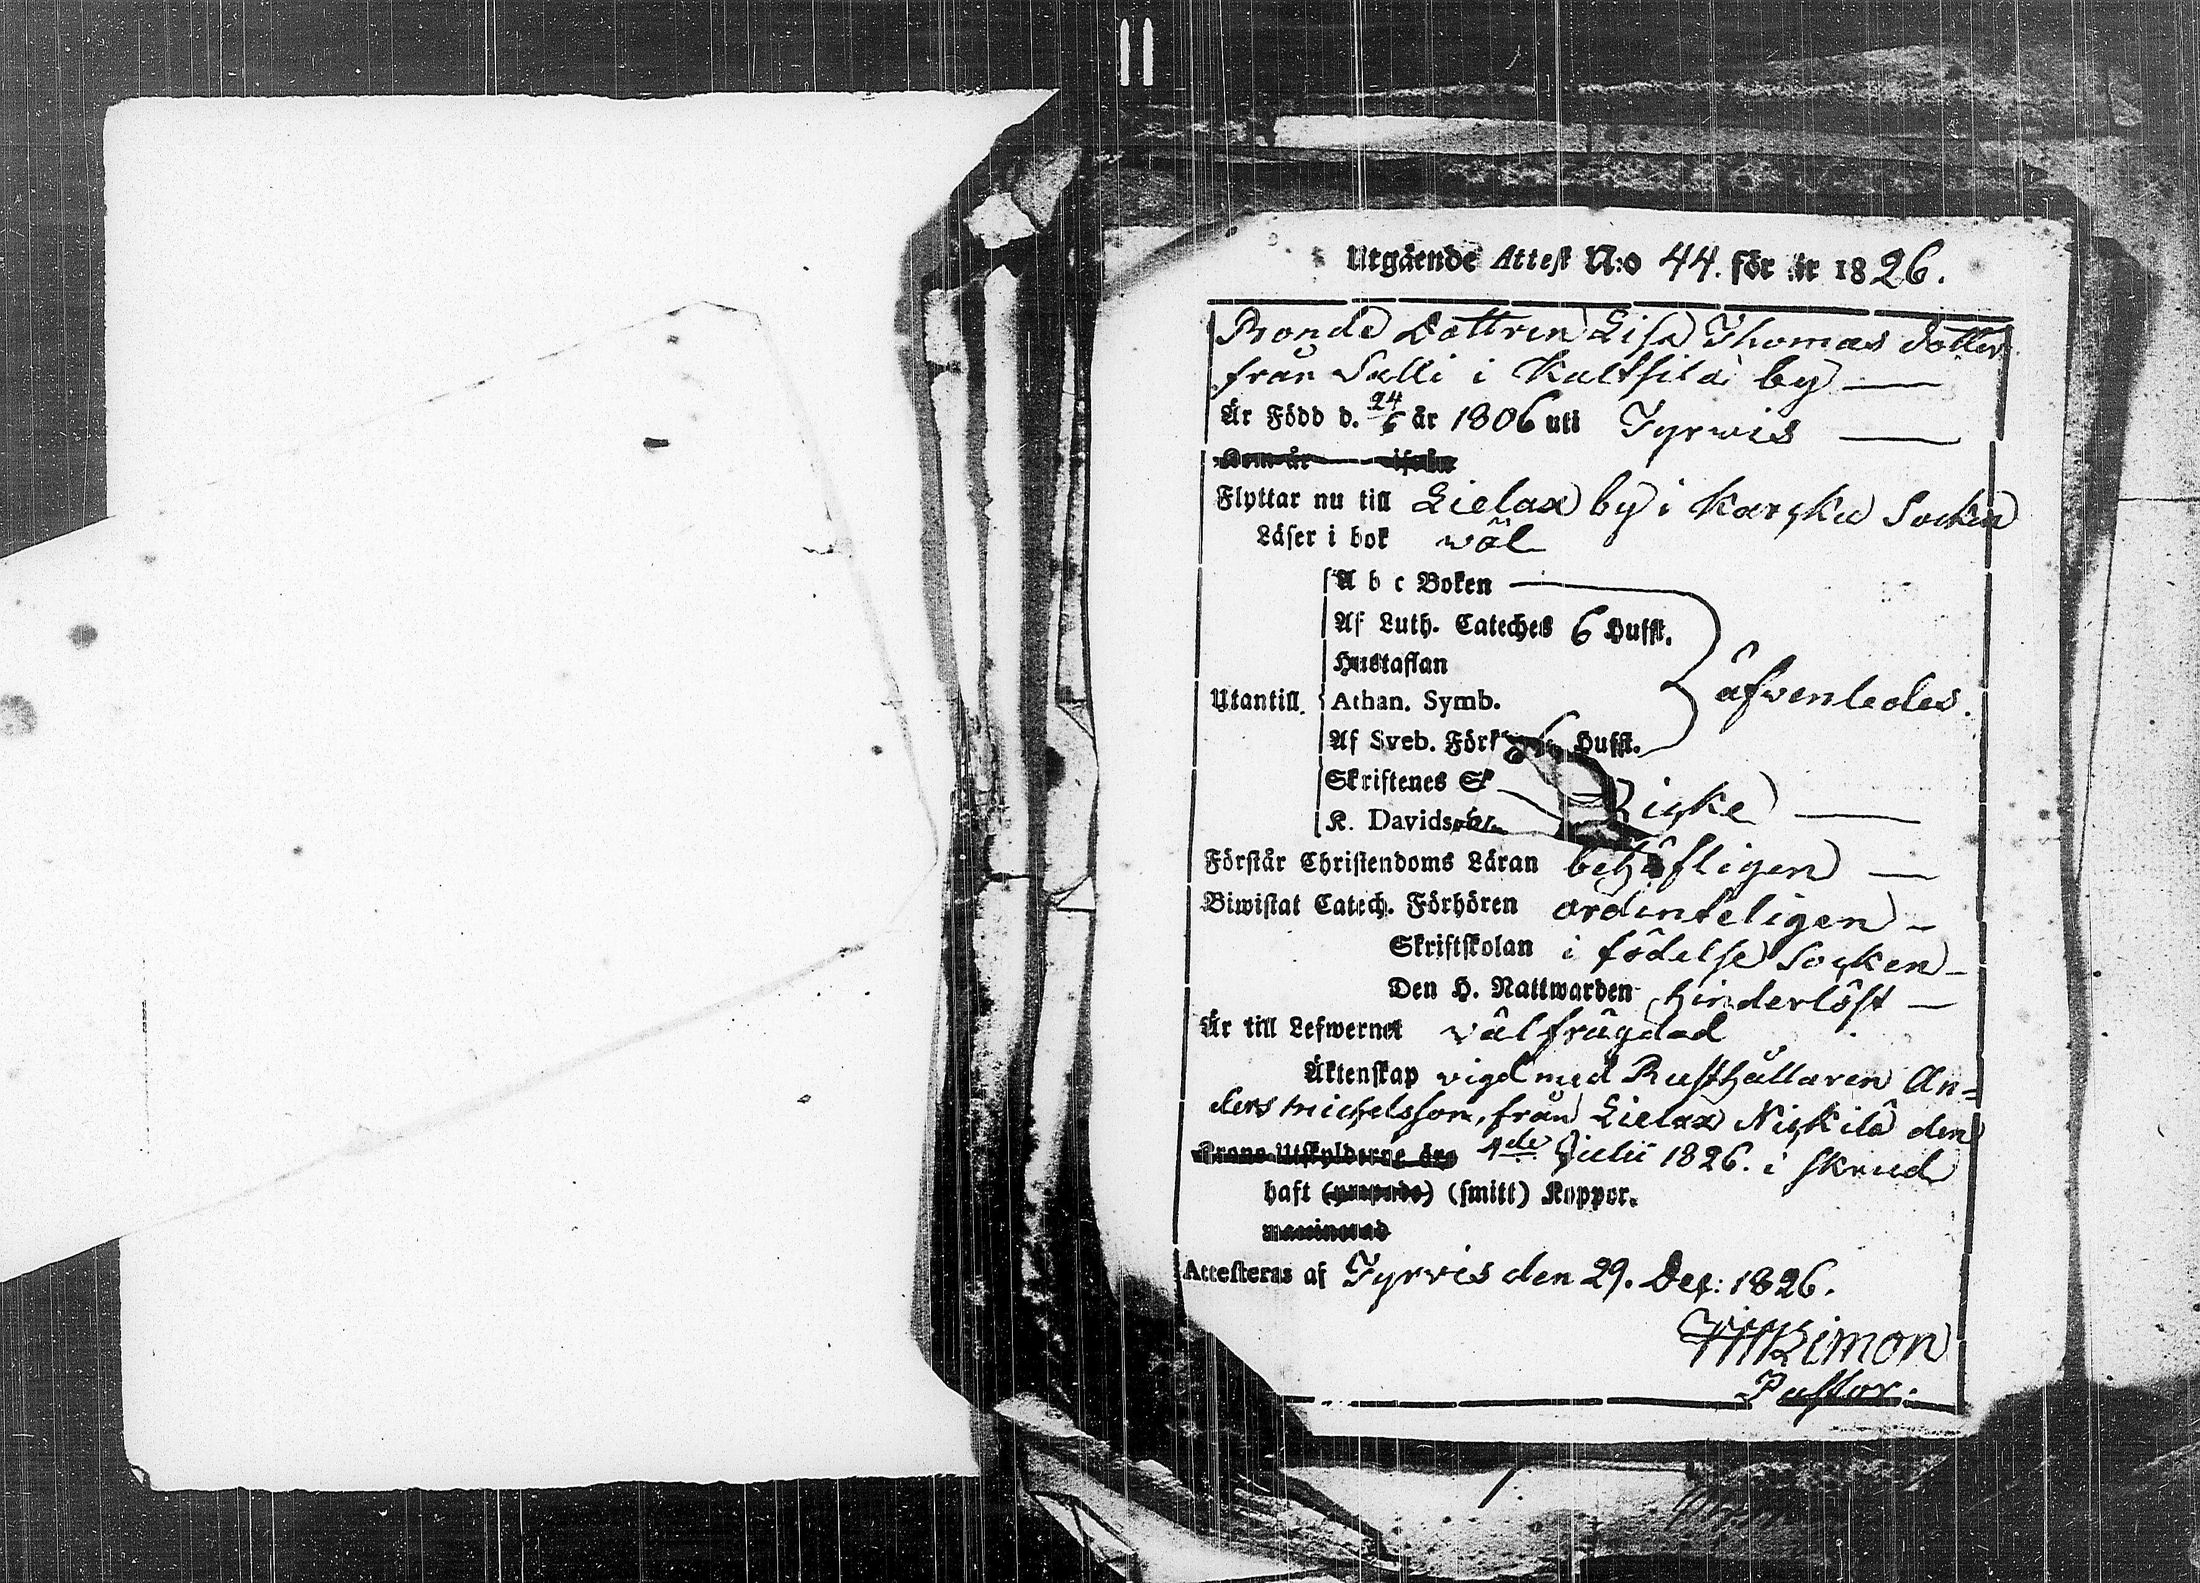 Utgående Attest N:o 44. för år 1826.
Bonde Dottren Lisa Thomas dotter
från Salli i Kaltsila by
Är Född d. 24/6 år 1806 uti Tyrwis
Flyttar nu till Lielax by i Karcku Socken
Läser i bok wäl
A b c Boken
Af Luth. Cateches 6 Hufst.
Hustaflan
Utantill. Athan. Symb. äfwenledes.
Af Sveb. Förk 6 Hufst.
Skriftenes Sk
K. Davids icke
Förstår Christendoms Läran behöfligen
Biwistat Catech. Förhören ordinteligen
Skriftskolan i födelse Socken
Den H. Nattwarden hinderlöst
Är till Lefwernet wälfrägdad
Äktenskap vigd med Rusthållaren An=
ders Michelsson, från Lielax Nickilä den
Krono Utskylderne äro 4de Julii 1826. i skrud
haft (smitt) Koppor.
Attesteras af Tyrvis den 29. Dec: 1826.
Pastor.